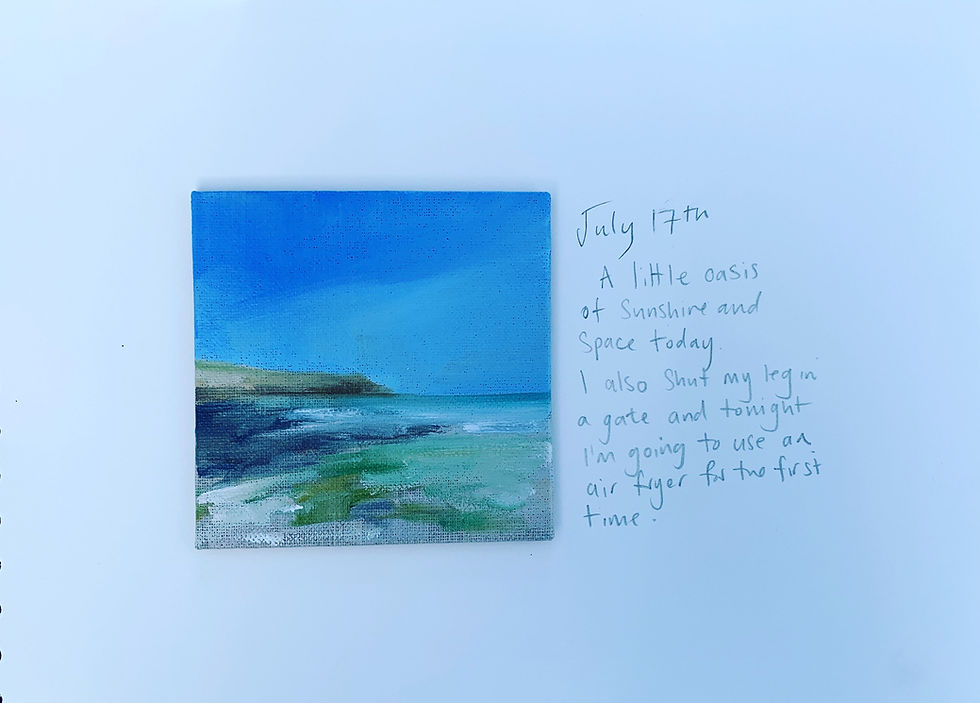 July 17th
A little oasis
of Sunshine and
Space today.
I also Shut my leg in
a gate and tonight
I'm going to use an
air fryer for the first
time.